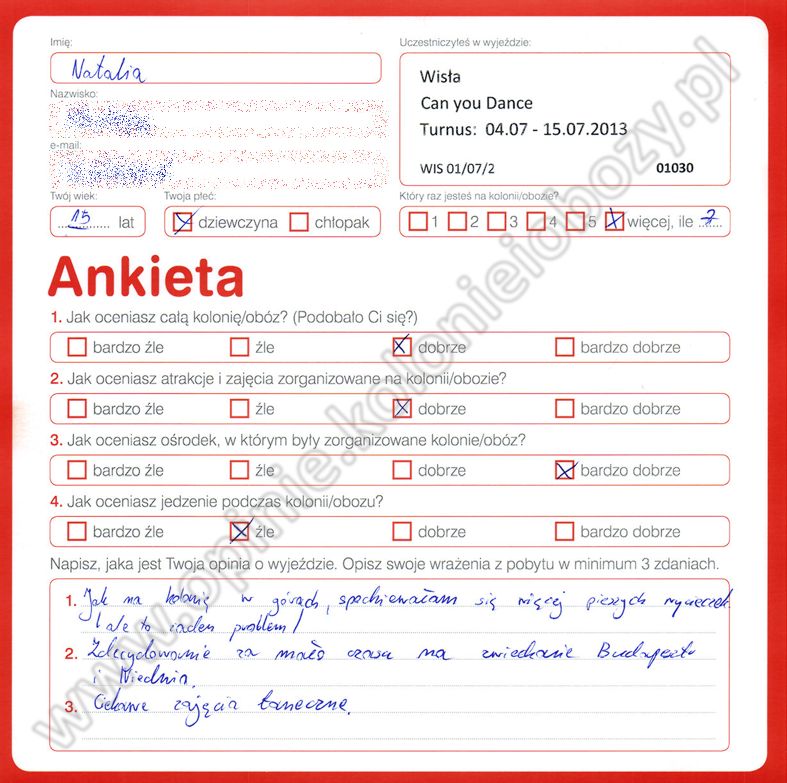 Imię:
Natalia
Nazwisko:
e-mail:
Twój wiek:
15 lat
Twoja płeć:
dziewczyna chłopak
Uczestniczyłeś w wyjeździe:
Wisła
Can you Dance
Turnus: 04.07 - 15.07.2013
WIS 01/07/2 01030
Który raz jesteś na kolonii/obozie?
1 2 3 4 5 więcej, ile 7
Ankieta
1. Jak oceniasz całą kolonię/obóz? (Podobało Ci się?)
bardzo źle źle dobrze bardzo dobrze
2. Jak oceniasz atrakcje i zajęcia zorganizowane na kolonii/obozie?
bardzo źle źle dobrze bardzo dobrze
3. Jak oceniasz ośrodek, w którym były zorganizowane kolonie/obóz?
bardzo źle źle dobrze bardzo dobrze
4. Jak oceniasz jedzenie podczas kolonii/obozu?
bardzo źle źle dobrze bardzo dobrze
Napisz, jaka jest Twoja opinia o wyjeździe. Opisz swoje wrażenia z pobytu w minimum 3 zdaniach.
1. Jak na kolonię w górach, spodziewałam się więcej pieszych wycieczek
/ale to żaden problem/
2. Zdecydowanie za mało czasu na zwiedzanie Budapesztu
i Wiednia.
3. Ciekawe zajęcia taneczne.
www.opinie.kolonieiobozy.pl